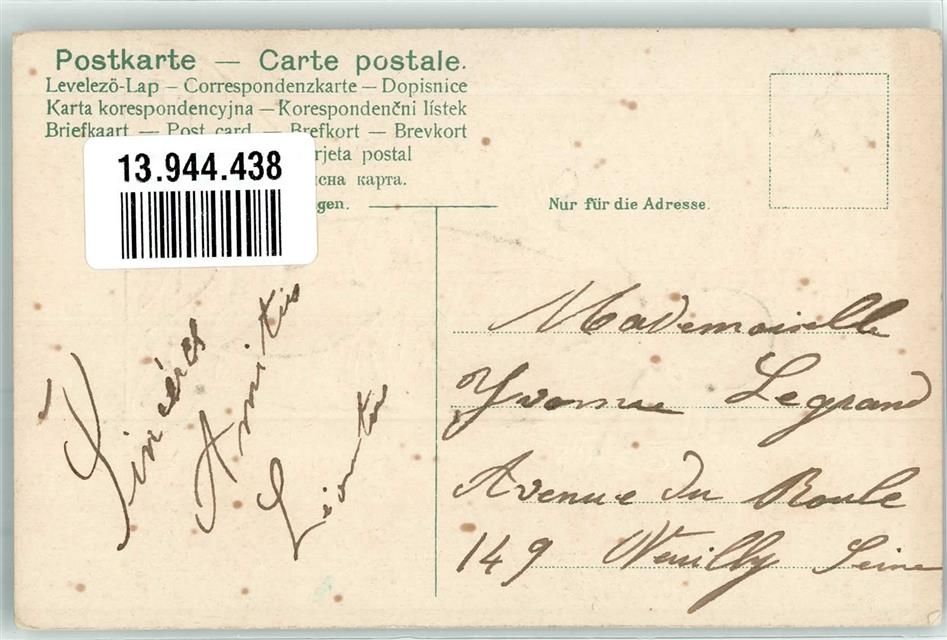 Postkarte — Carte postale.
Levelező-Lap – Correspondenzkarte – Dopisnice
Karta korespondencyjna – Korespondenčni lístek
Briefkaart — Post card — Brefkort — Brevkort
rjeta postal
сна карта.
gen.
Nur für die Adresse.
13.944.438
Sincères
Amitiés
Mademoiselle
Yvonne Legrand
Avenue du Roule
149 Neuilly Seine